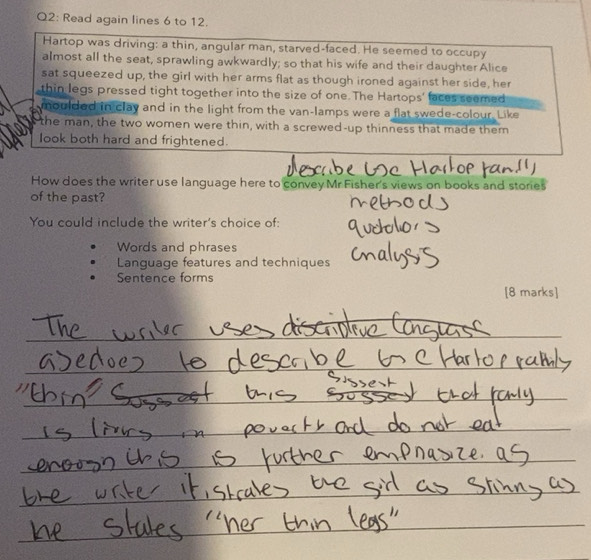 Q2: Read again lines 6 to 12.
Hartop was driving: a thin, angular man, starved-faced. He seemed to occupy
almost all the seat, sprawling awkwardly; so that his wife and their daughter Alice
sat squeezed up, the girl with her arms flat as though ironed against her side, her
thin legs pressed tight together into the size of one. The Hartops' faces seemed
moulded in clay and in the light from the van-lamps were a flat swede-colour. Like
the man, the two women were thin, with a screwed-up thinness that made them
look both hard and frightened.
describe the Hartop family
How does the writer use language here to convey Mr Fisher's views on books and stories
of the past?
methods
You could include the writer's choice of:
analysis
• Words and phrases
• Language features and techniques
• Sentence forms
[8 marks]
The writer uses
to describe the Hartop family
"thin" this that
is in poverty and do not eat
this is further emphasize. as
the writer the girl as skinny as
he states "her thin legs"